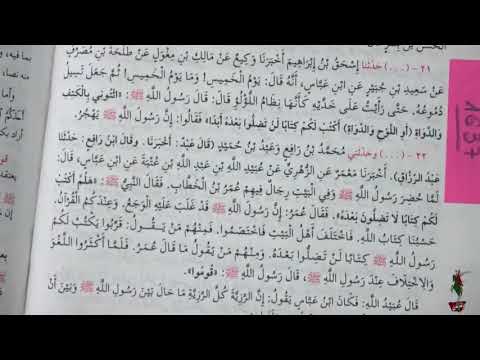 ٢١ - (...) حدثنا إِسْحَقُ بْنُ إِبْرَاهِيمَ أَخْبَرَنَا وَكِيعٌ عَنْ مَالِكِ بْنِ مِغْوَلٍ عَنْ طَلْحَةَ بْنِ مُصَرِّفٍ
عَنْ سَعِيدِ بْنِ جُبَيْرٍ عَنِ ابْنِ عَبَّاسٍ، أَنَّهُ قَالَ: يَوْمُ الْخَمِيسِ! وَمَا يَوْمُ الْخَمِيسِ! ثُمَّ جَعَلَ تَسِيلُ
دُمُوعُهُ. حَتَّى رَأَيْتُ عَلَى خَدَّيْهِ كَأَنَّهَا نِظَامُ اللُّؤْلُؤِ قَالَ: قَالَ رَسُولُ اللَّهِ ﷺ: «ائْتُونِي بِالْكَتِفِ
وَالدَّوَاةِ (أَوِ اللَّوْحِ وَالدَّوَاةِ) أَكْتُبْ لَكُمْ كِتَابًا لَنْ تَضِلُّوا بَعْدَهُ أَبَدًا» فَقَالُوا: إِنَّ رَسُولَ اللَّهِ ﷺ يَهْجُرُ.
٢٢ - (...) وحدثني مُحَمَّدُ بْنُ رَافِعٍ وَعَبْدُ بْنُ حُمَيْدٍ (قَالَ عَبْدٌ: أَخْبَرَنَا. وَقَالَ ابْنُ رَافِعٍ: حَدَّثَنَا
عَبْدُ الرَّزَّاقِ). أَخْبَرَنَا مَعْمَرٌ عَنِ الزُّهْرِيِّ عَنْ عُبَيْدِ اللَّهِ بْنِ عَبْدِ اللَّهِ بْنِ عُتْبَةَ عَنِ ابْنِ عَبَّاسٍ، قَالَ:
لَمَّا حُضِرَ رَسُولُ اللَّهِ ﷺ وَفِي الْبَيْتِ رِجَالٌ فِيهِمْ عُمَرُ بْنُ الْخَطَّابِ. فَقَالَ النَّبِيُّ ﷺ: «هَلُمَّ أَكْتُبْ
لَكُمْ كِتَابًا لَا تَضِلُّونَ بَعْدَهُ». فَقَالَ عُمَرُ: إِنَّ رَسُولَ اللَّهِ ﷺ قَدْ غَلَبَ عَلَيْهِ الْوَجَعُ. وَعِنْدَكُمُ الْقُرْآنُ.
حَسْبُنَا كِتَابُ اللَّهِ. فَاخْتَلَفَ أَهْلُ الْبَيْتِ فَاخْتَصَمُوا. فَمِنْهُمْ مَنْ يَقُولُ: قَرِّبُوا يَكْتُبْ لَكُمْ
رَسُولُ اللَّهِ ﷺ كِتَابًا لَنْ تَضِلُّوا بَعْدَهُ. وَمِنْهُمْ مَنْ يَقُولُ مَا قَالَ عُمَرُ. فَلَمَّا أَكْثَرُوا اللَّغْوَ
وَالِاخْتِلَافَ عِنْدَ رَسُولِ اللَّهِ ﷺ، قَالَ رَسُولُ اللَّهِ ﷺ: «قُومُوا».
قَالَ عُبَيْدُ اللَّهِ: فَكَانَ ابْنُ عَبَّاسٍ يَقُولُ: إِنَّ الرَّزِيَّةَ كُلَّ الرَّزِيَّةِ مَا حَالَ بَيْنَ رَسُولِ اللَّهِ ﷺ وَبَيْنَ أَنْ
1637